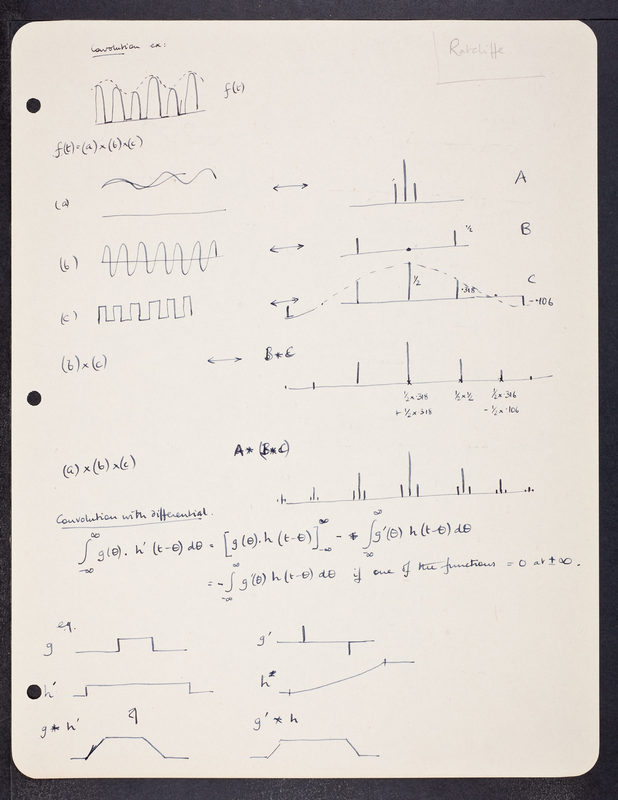 Convolution ex:
Ratcliffe
f(t)
f(t) = (a) × (b) × (c)
(a)
A
(b)
½
B
(c)
½
.318
C
-.106
(b) × (c)
B * C
½×.318
+ ½×.318
½×½
½×.316
- ½×.106
(a) × (b) × (c)
A * (B * C)
Convolution with differential.
∫_{-∞}^{∞} g(θ). h'(t-θ) dθ = [g(θ).h(t-θ)]_{-∞}^{∞} - ∫_{-∞}^{∞} g'(θ) h(t-θ) dθ
= - ∫_{-∞}^{∞} g'(θ) h(t-θ) dθ if one of the functions = 0 at ±∞.
eg.
g
g'
h'
h
g * h'
g' * h